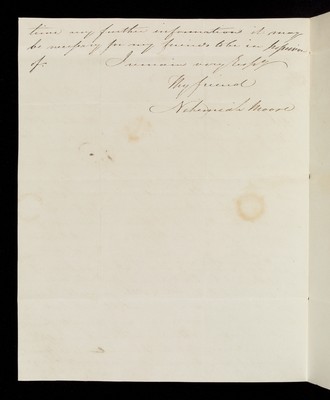 time any further information it may
be necessary for my friends to be in possession
of. I remain very Respy
Thy friend
Nehemiah Moore